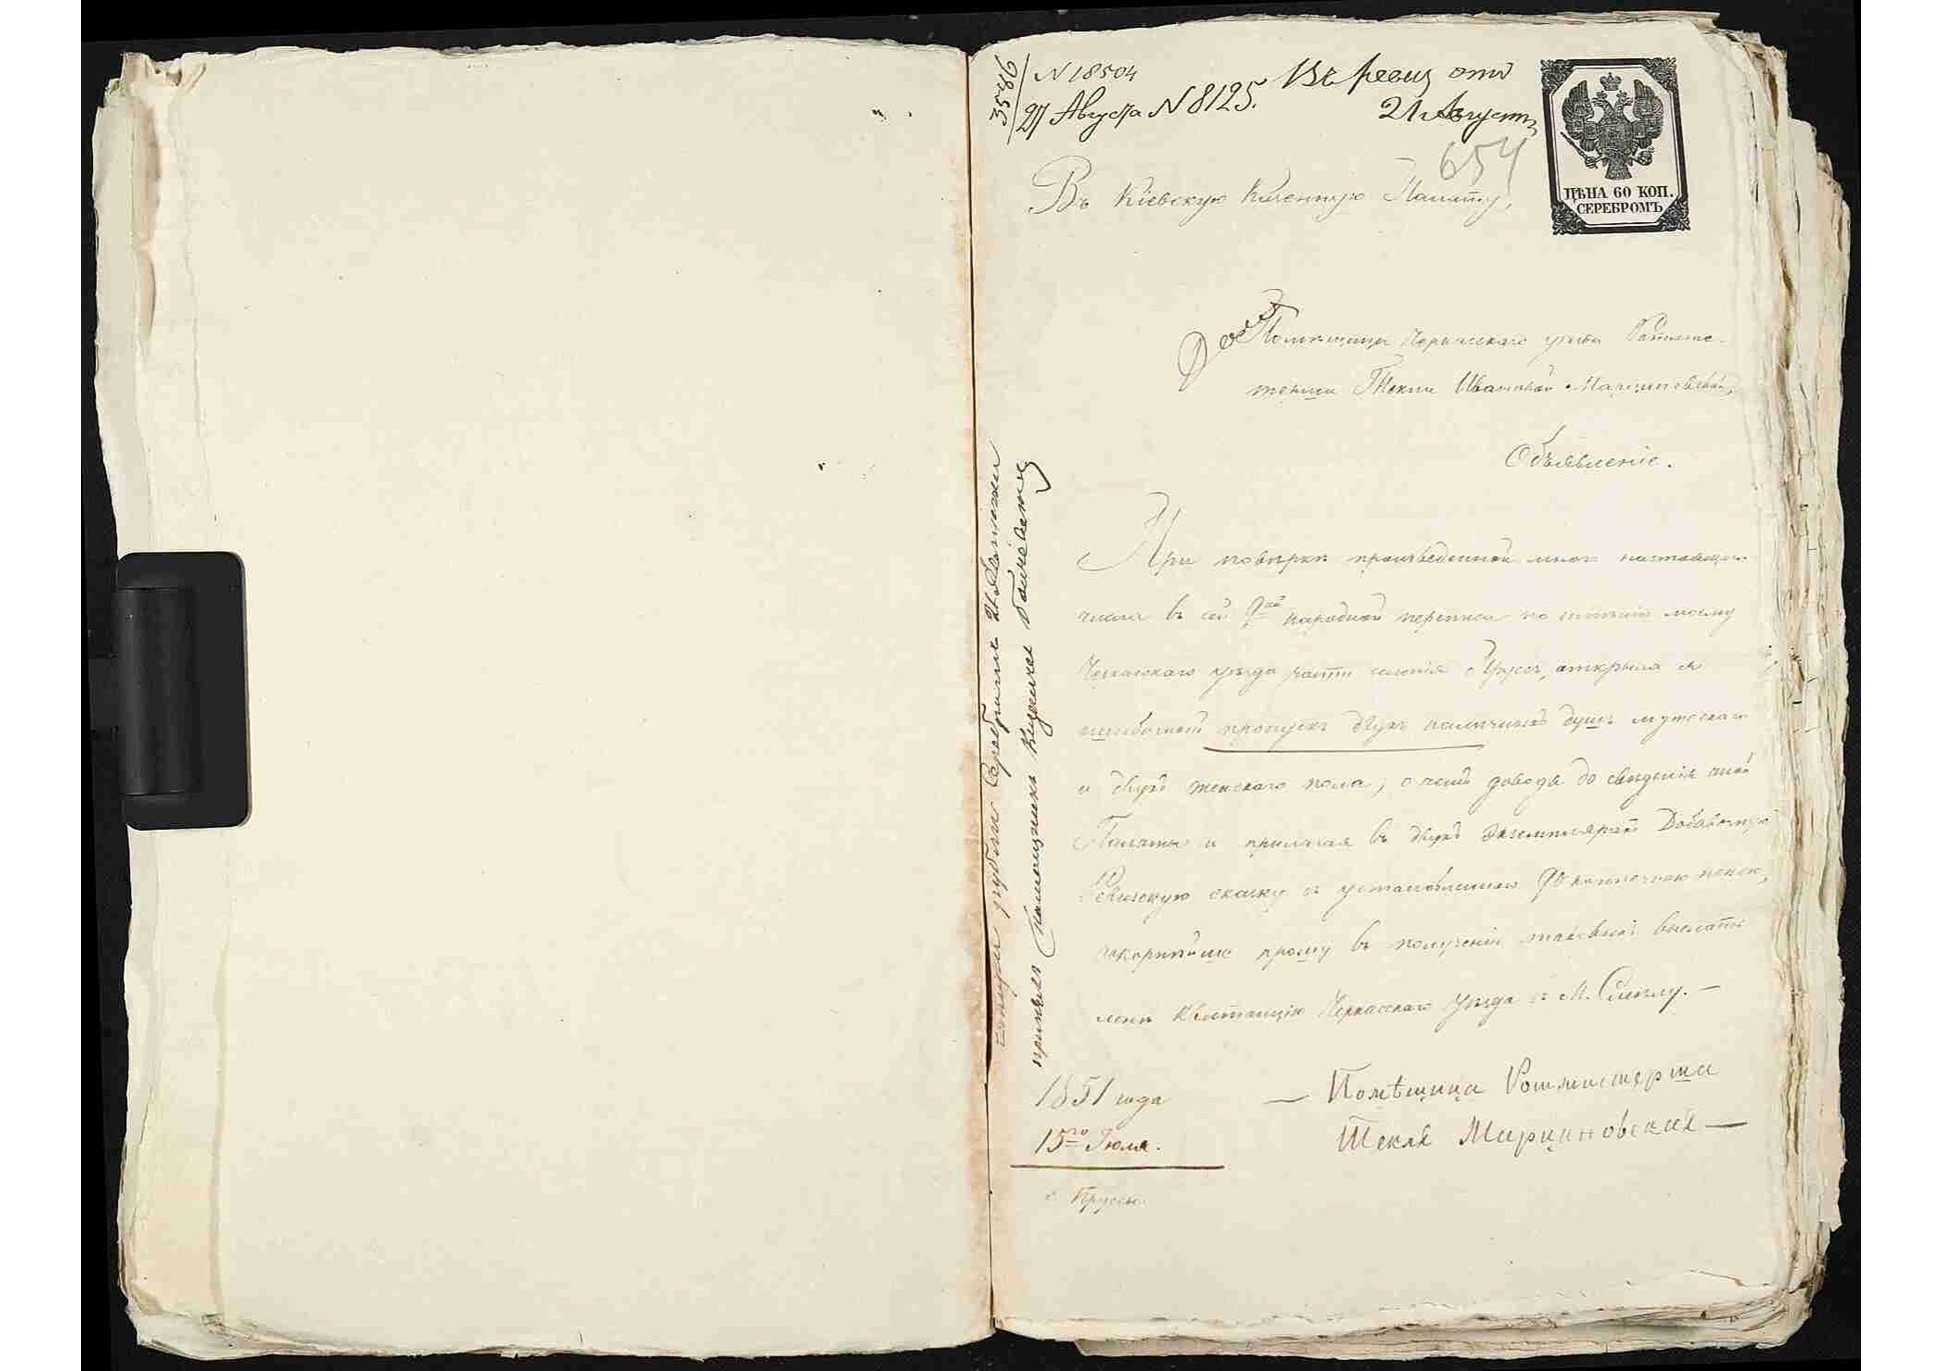 3586
N 18504
27 Августа N 8125.
Въ ревиз отд
21 Августа
654
ЦѢНА 60 КОП.
СЕРЕБРОМЪ
Въ Кіевскую Казенную Палату,
Помѣщицы Черкасскаго уѣзда Ротмис-
терши Текли Ивановой Марциновской,
Объявленіе.
При повѣрки произведенной мною настоящаго
числа въ сей 9ой народной переписи по имѣнію моему
Черкасскаго уѣзда части имѣнія с Прусъ, открыла я
ошибочной пропускъ двухъ наличныхъ душъ мужскаго
и двухъ женскаго пола, о чемъ доводя до свѣденія оной
Палаты и прилагая въ двухъ экземплярахъ Добавочную
Ревизскую сказку съ установленною 90 копѣечною пенею,
покорнѣйше прошу въ полученіи таковыхъ выслать
мнѣ Квитанцію Черкасскаго Уѣзда въ М. Смѣлу. —
— Помѣщица Ротмистерша
Текля Марциновская —
1851 года
15го Іюля.
с. Прусы.
рубли Серебромъ 21
принялъ Помощникъ